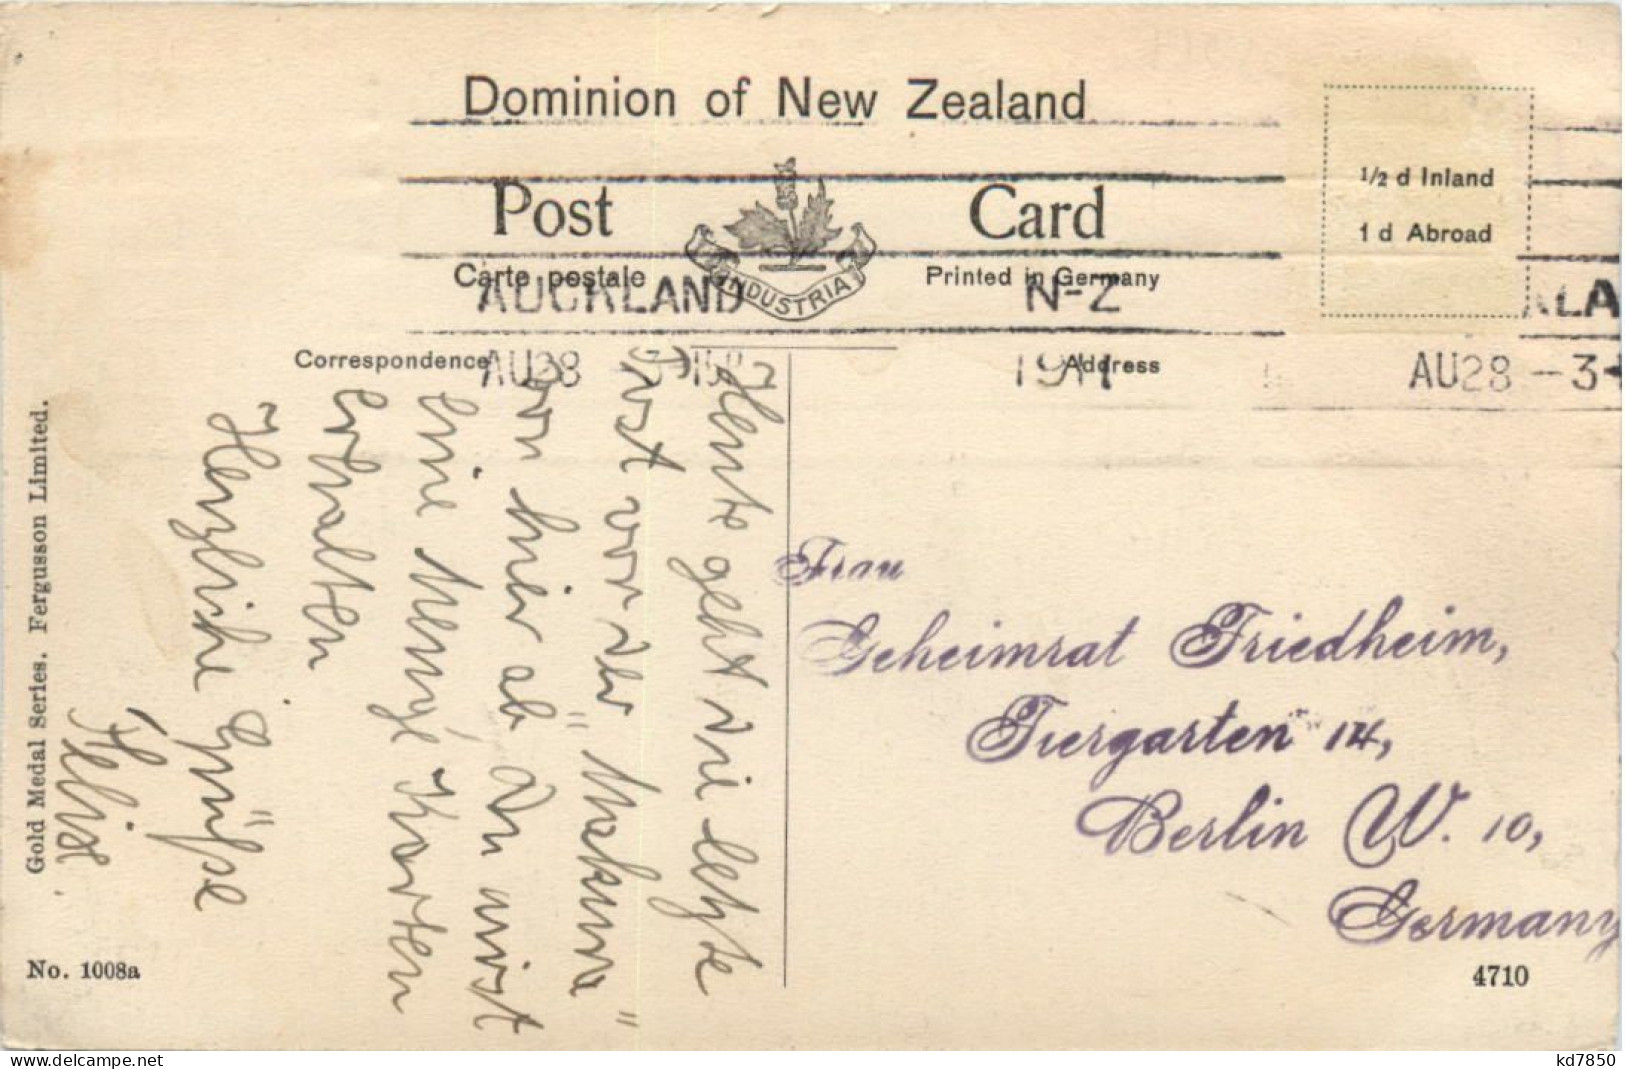 Dominion of New Zealand
Post Card
INDUSTRIA
Carte postale
Printed in Germany
½ d Inland
1 d Abroad
AUCKLAND N-Z
AU28
1911
AU28 -3
Correspondence
Address
Heute geht die letzte
Post vor der "Makura"
von hier ab Du wirst
eine Menge Karten
erhalten
Herzliche Grüße
Felix.
Frau
Geheimrat Friedheim,
Tiergarten 14,
Berlin W. 10,
Germany
Gold Medal Series. Fergusson Limited.
No. 1008a
4710
kd7850